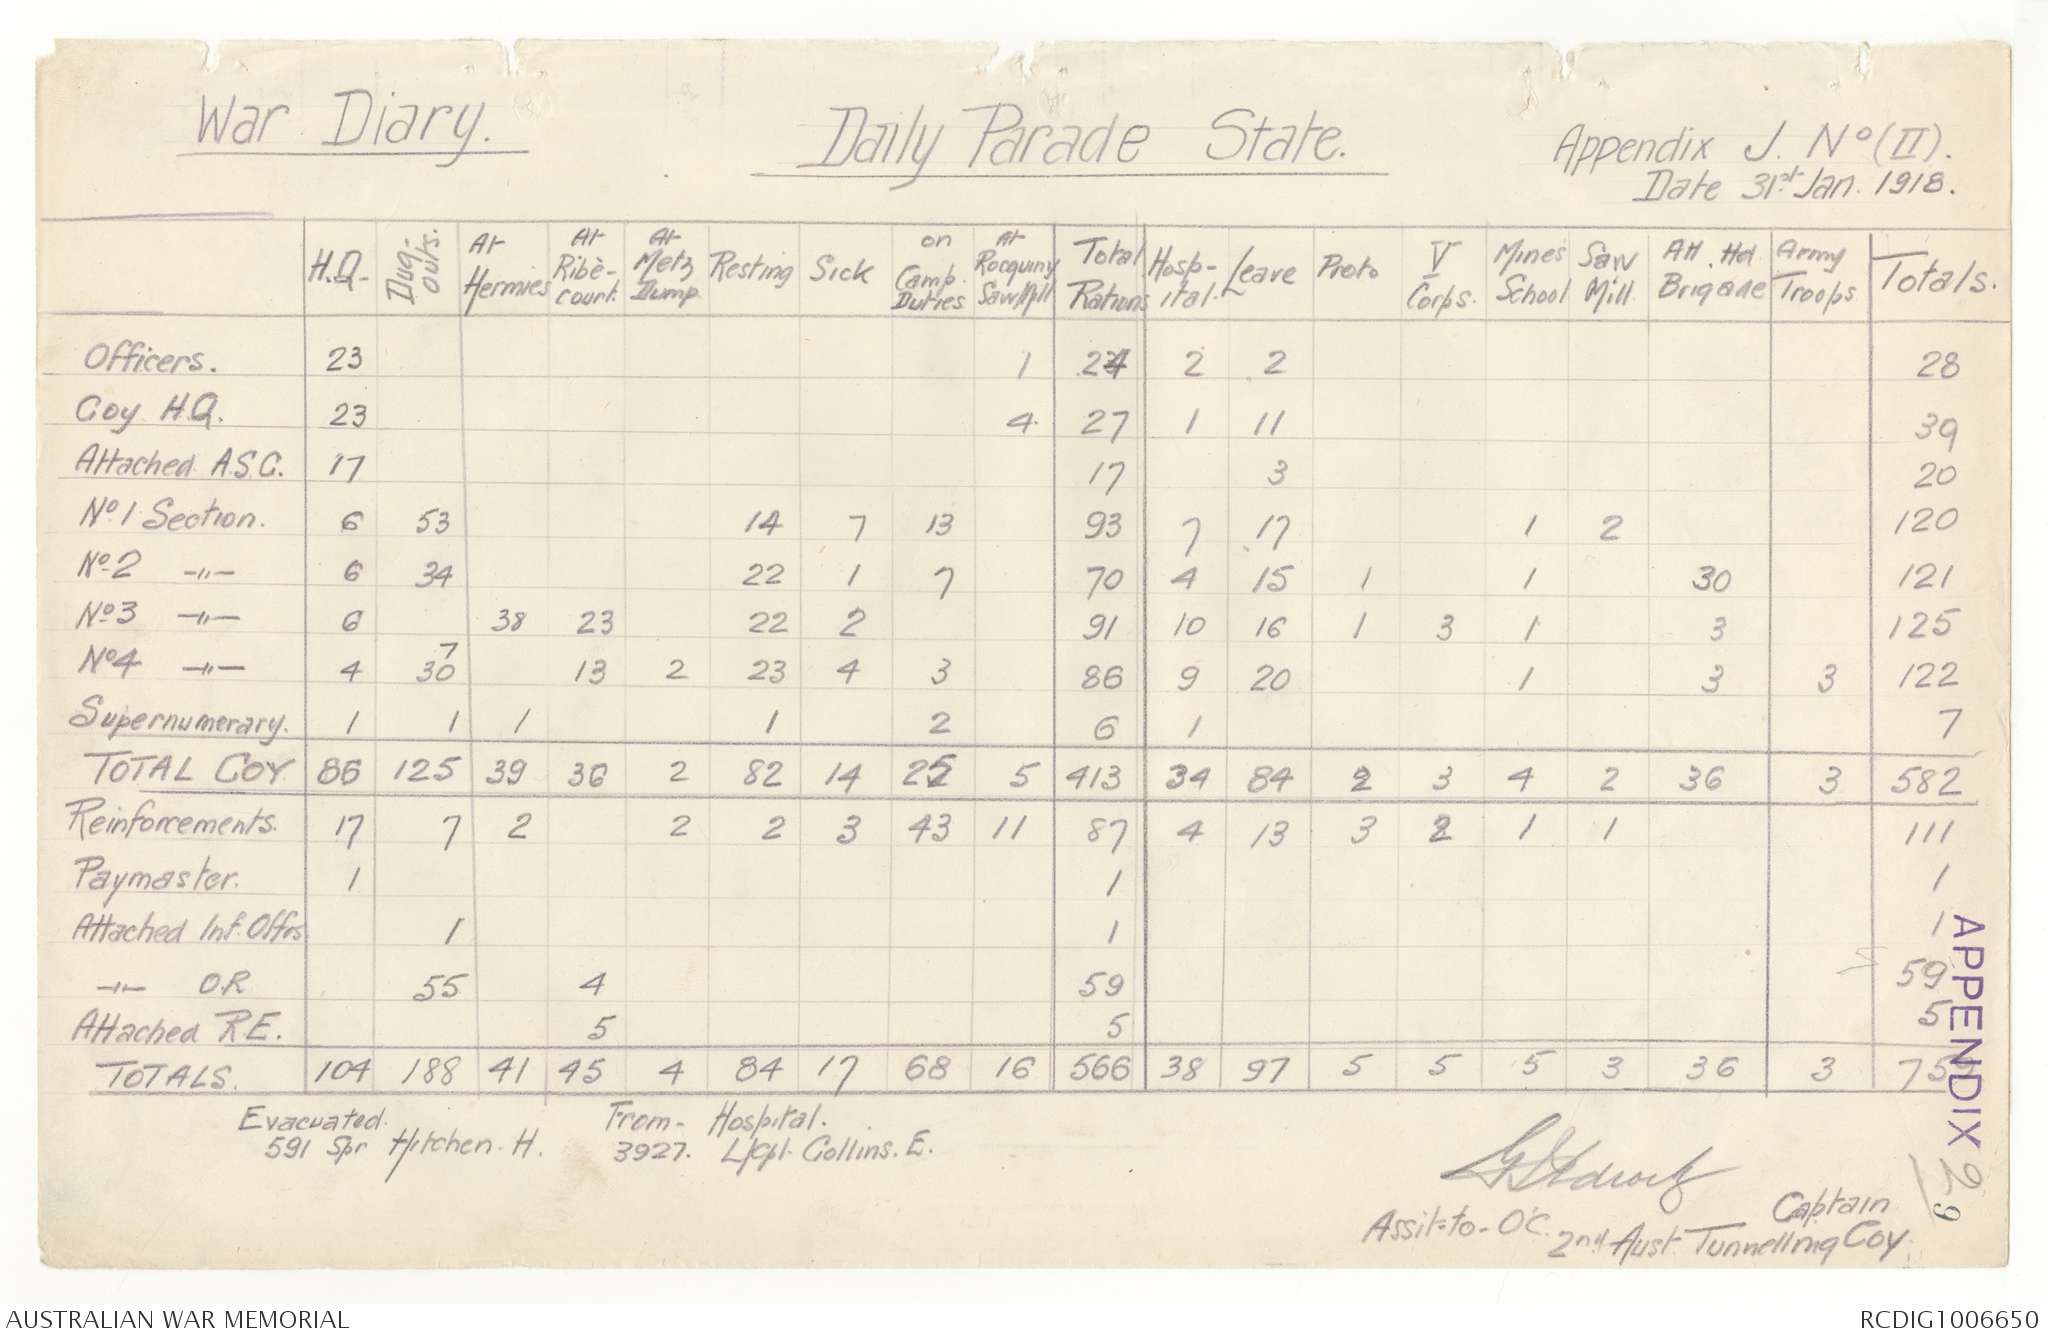 War Diary. Daily Parade State. Appendix J. No (II).
Date 31st Jan. 1918.
H.Q. Dug-outs. At Hermies At Ribècourt. At Metz Dump Resting Sick on Camp Duties At Rocquiny Saw Mill Total Rations Hospital. Leave Proto V Corps. Mines School Saw Mill. Att. Hd. Brigade Army Troops Totals.
Officers. 23 1 24 2 2 28
Coy H.Q. 23 4 27 1 11 39
Attached A.S.C. 17 17 3 20
No 1 Section. 6 53 14 7 13 93 7 17 1 2 120
No 2 -"- 6 34 22 1 7 70 4 15 1 1 30 121
No 3 -"- 6 38 23 22 2 91 10 16 1 3 1 3 125
No 4 -"- 4 7 30 13 2 23 4 3 86 9 20 1 3 3 122
Supernumerary. 1 1 1 1 2 6 1 7
TOTAL COY 86 125 39 36 2 82 14 25 5 413 34 84 2 3 4 2 36 3 582
Reinforcements. 17 7 2 2 2 3 43 11 87 4 13 3 2 1 1 111
Paymaster. 1 1 1
Attached Inf. Offrs 1 1 1
-"- O.R 55 4 59 59
Attached R.E. 5 5 5
TOTALS. 104 188 41 45 4 84 17 68 16 566 38 97 5 5 5 3 36 3 75
Evacuated. From Hospital.
591 Spr Hitchen. H. 3927. L/Cpl. Collins. E.
Captain
Assit-to-O'C. 2nd Aust. Tunnelling Coy.
APPENDIX 29
AUSTRALIAN WAR MEMORIAL RCDIG1006650